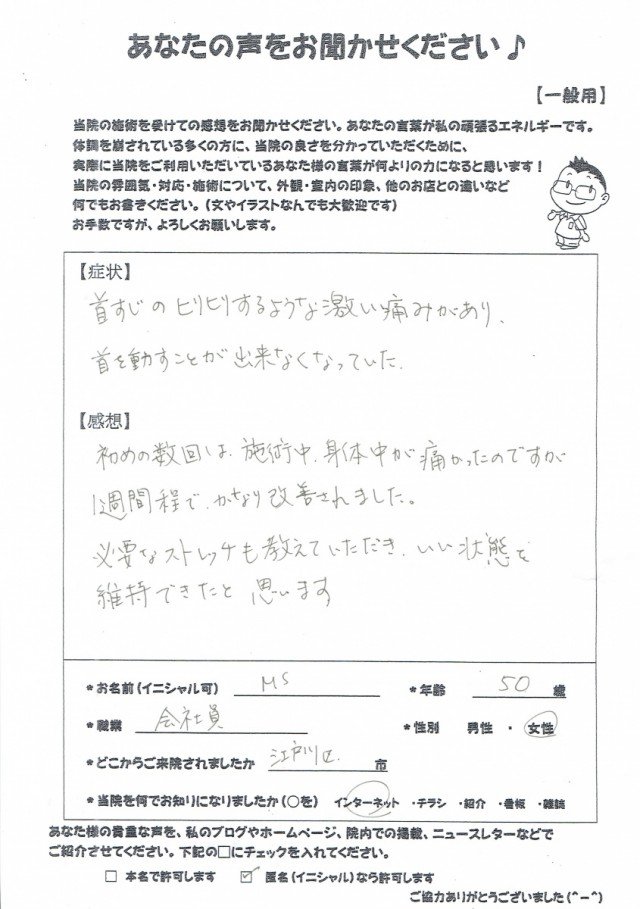 あなたの声をお聞かせください♪
【一般用】
当院の施術を受けての感想をお聞かせください。あなたの言葉が私の頑張るエネルギーです。
体調を崩されている多くの方に、当院の良さを分かっていただくために、
実際に当院をご利用いただいているあなた様の言葉が何よりの力になると思います！
当院の雰囲気・対応・施術について、外観・室内の印象、他のお店との違いなど
何でもお書きください。（文やイラストなんでも大歓迎です）
お手数ですが、よろしくお願いします。
【症状】
首すじのヒリヒリするような激い痛みがあり、
首を動すことが出来なくなっていた。
【感想】
初めの数回は、施術中、身体中が痛かったのですが
1週間程で、かなり改善されました。
必要なストレッチも教えていただき、いい状態を
維持できたと思います
*お名前（イニシャル可） MS *年齢 50 歳
*職業 会社員 *性別 男性 ・ 女性
*どこからご来院されましたか 江戸川区 市
*当院を何でお知りになりましたか（○を） インターネット ・チラシ ・紹介 ・看板 ・雑誌
あなた様の貴重な声を、私のブログやホームページ、院内での掲載、ニュースレターなどで
ご紹介させてください。下記の□にチェックを入れてください。
□ 本名で許可します ☑ 匿名（イニシャル）なら許可します
ご協力ありがとうございました（^－^）